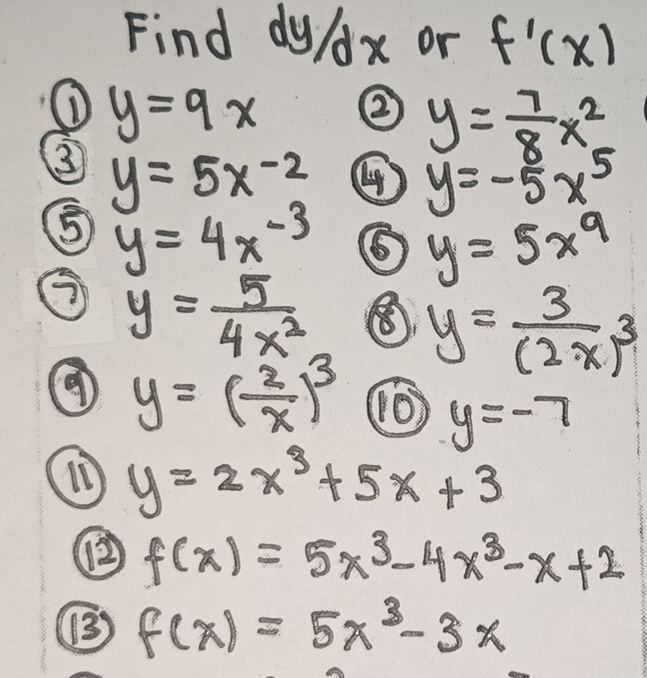 Find dy/dx or f'(x)
① y=9x ② y=7/8x²
③ y=5x⁻² ④ y=-5x⁵
⑤ y=4x⁻³ ⑥ y=5x⁹
⑦ y=5/4x² ⑧ y=3/(2x)³
⑨ y=(2/x)³ ⑩ y=-7
⑪ y=2x³+5x+3
⑫ f(x)=5x³-4x³-x+2
⑬ f(x)=5x³-3x